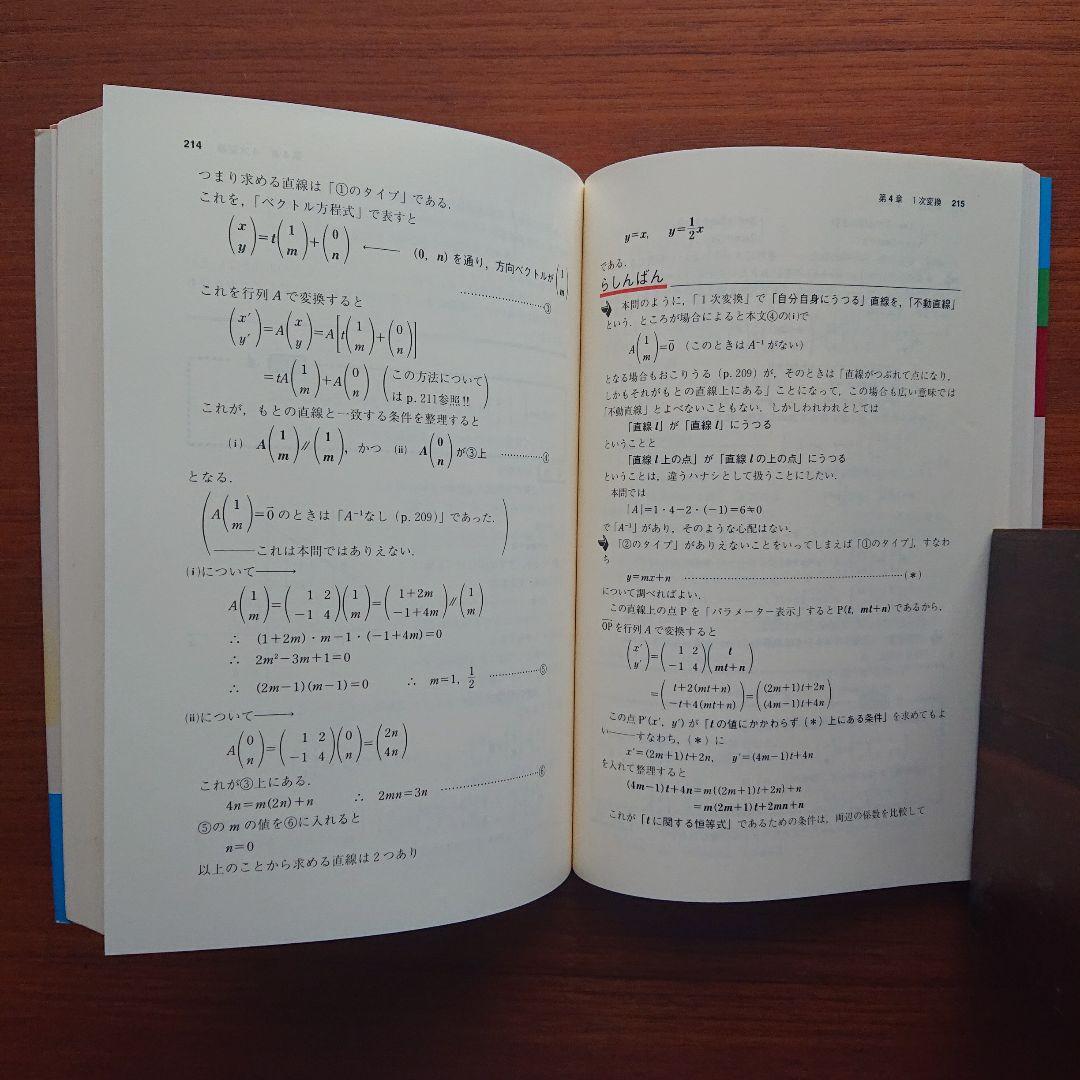 214
つまり求める直線は「①のタイプ」である.
これを,「ベクトル方程式」で表すと
(x y)=t(1 m)+(0 n) ←—— (0, n) を通り, 方向ベクトルが(1 m)
……………③
これを行列 A で変換すると
(x′ y′)=A(x y)=A[t(1 m)+(0 n)]
=tA(1 m)+A(0 n) (この方法については p.211参照!!)
これが, もとの直線と一致する条件を整理すると
(i) A(1 m)∥(1 m), かつ (ii) A(0 n)が③上 …………④
となる.
(A(1 m)=0̄ のときは「A⁻¹なし (p.209)」であった.
——これは本問ではありえない.)
(i)について——→
A(1 m)=(1 2 −1 4)(1 m)=(1+2m −1+4m)∥(1 m)
∴ (1+2m)・m−1・(−1+4m)=0
∴ 2m²−3m+1=0
∴ (2m−1)(m−1)=0 ∴ m=1, 1/2 ……………⑤
(ii)について——→
A(0 n)=(1 2 −1 4)(0 n)=(2n 4n)
これが③上にある.
4n=m(2n)+n ∴ 2mn=3n ……………⑥
⑤の m の値を⑥に入れると
n=0
以上のことから求める直線は2つあり
第4章 1次変換 215
y=x, y=1/2x
である.
らしんばん
本問のように,「1次変換」で「自分自身にうつる」直線を,「不動直線」
という. ところが場合によると本文④の(i)で
A(1 m)=0̄ (このときは A⁻¹ がない)
となる場合もおこりうる (p.209) が, そのときは「直線がつぶれて点になり,
しかもそれがもとの直線上にある」ことになって, この場合も広い意味では
「不動直線」とよべないこともない. しかしわれわれとしては
「直線 l」が「直線 l」にうつる
ということと
「直線 l 上の点」が「直線 l の上の点」にうつる
ということは, 違うハナシとして扱うことにしたい.
本問では
|A|=1・4−2・(−1)=6≠0
で「A⁻¹」があり, そのような心配はない.
「②のタイプ」がありえないことをいってしまえば「①のタイプ」, すなわ
ち
y=mx+n ……………(*)
について調べればよい.
この直線上の点 P を「パラメーター表示」すると P(t, mt+n) であるから,
O̅P̅を行列 A で変換すると
(x′ y′)=(1 2 −1 4)(t mt+n)
=(t+2(mt+n) −t+4(mt+n))=((2m+1)t+2n (4m−1)t+4n)
この点 P′(x′, y′) が「t の値にかかわらず (*) 上にある条件」を求めてもよ
い——すなわち, (*) に
x′=(2m+1)t+2n, y′=(4m−1)t+4n
を入れて整理すると
(4m−1)t+4n=m((2m+1)t+2n)+n
=m(2m+1)t+2mn+n
これが「t に関する恒等式」であるための条件は, 両辺の係数を比較して